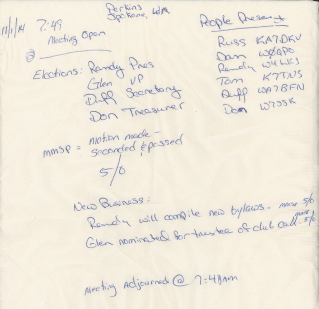 Perkins
Spokane, WA
11/1/14
7:49
Meeting Open
@
People Present
Russ KA7DKV
Dan
Randy W4WKJ
Tom K7TNS
Duff WA7BFN
Don W7JSK
Elections: Randy Pres
Glen VP
Duff Secretary
Don Treasurer
MMSP = motion made -
seconded & passed
5/0
New Business:
Randy will compile new bylaws. MMSP 5/0
Glen nominated for trustee of club call. MMSP 5/0
Meeting Adjourned @ 7:48am